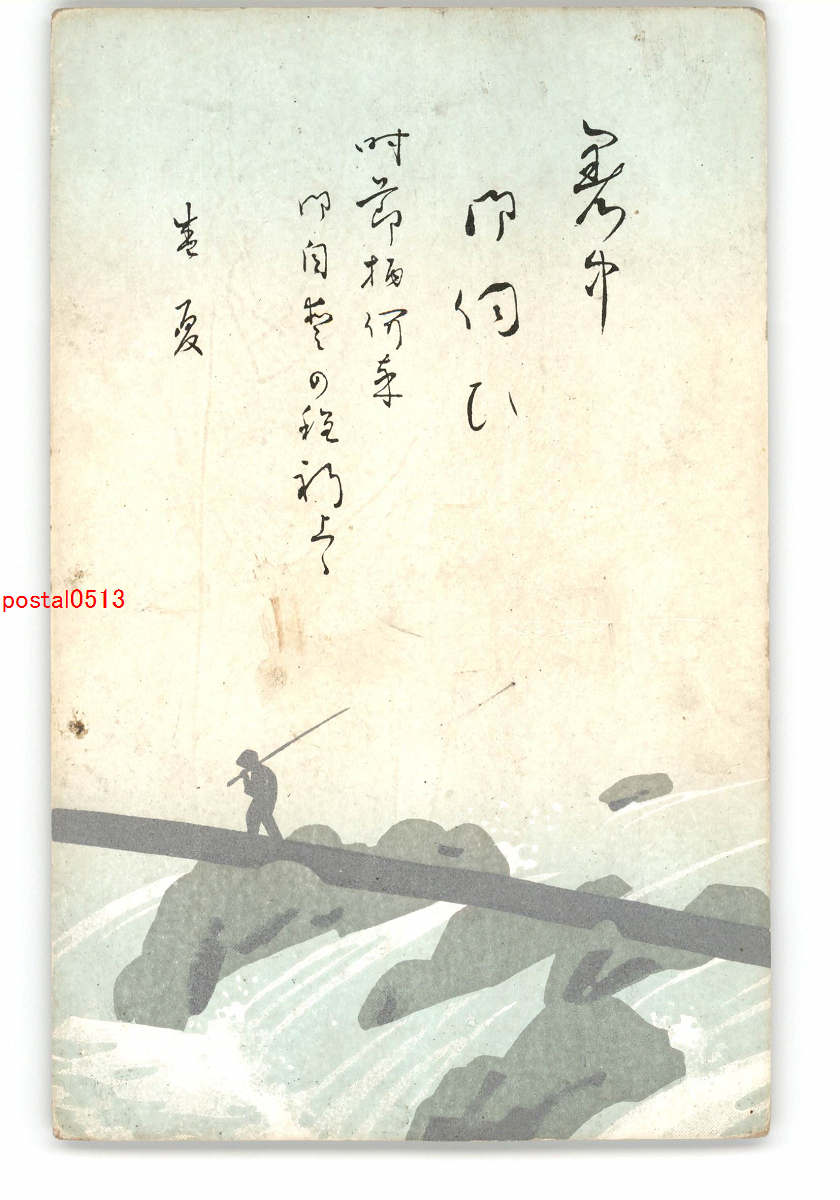 暑中
御伺ひ
時節柄何卒
御自愛の程祈上候
盛夏
postal0513